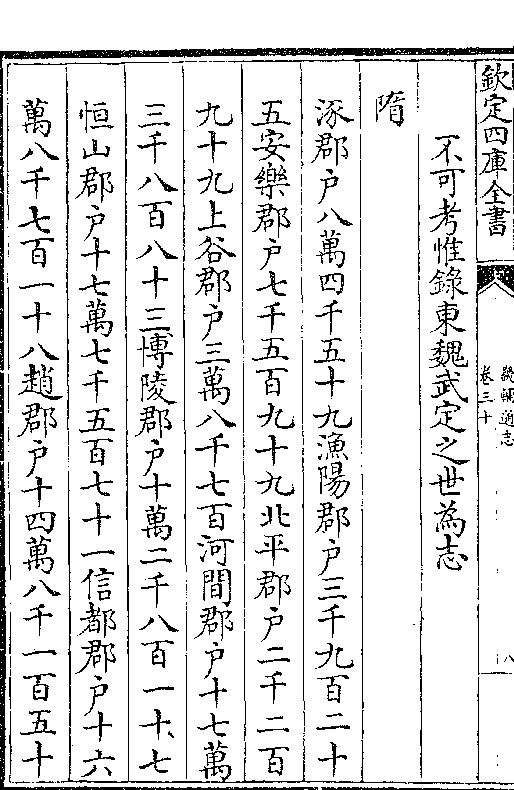 欽定四庫全書
畿輔通志
卷三十
八
不可考惟錄東魏武定之世為志
隋
涿郡户八萬四千五十九漁陽郡户三千九百二十
五安樂郡户七千五百九十九北平郡户二千二百
九十九上谷郡户三萬八千七百河間郡户十七萬
三千八百八十三博陵郡户十萬二千八百一十七
恒山郡户十七萬七千五百七十一信都郡户十六
萬八千七百一十八趙郡户十四萬八千一百五十